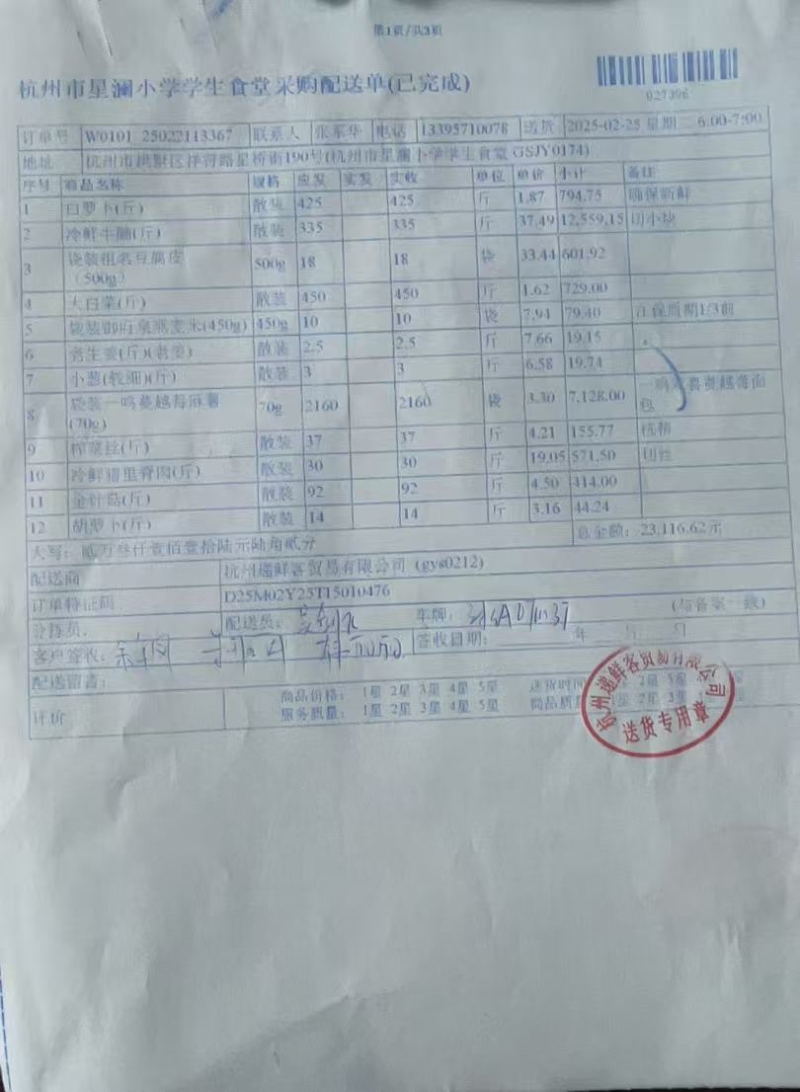 第1页/共3页
杭州市星澜小学学生食堂采购配送单(已完成)
027396
订单号 W0101_25022113367 联系人 张 电话 13395710078 送货 2025-02-25 星期二 6:00-7:00
地址 杭州市拱墅区祥符路星桥街190号(杭州市星澜小学学生食堂 GSJY0174)
序号 商品名称 规格 应发 实发 实收 单位 单价 小计 备注
1 白萝卜(斤) 散装 425 425 斤 1.87 794.75 确保新鲜
2 冷鲜牛腩(斤) 散装 335 335 斤 37.49 12,559.15 切小块
3 袋装祖名豆腐皮(500g) 500g 18 18 袋 33.44 601.92
4 大白菜(斤) 散装 450 450 斤 1.62 729.00
5 袋装 燕麦米(450g) 450g 10 10 袋 7.94 79.40 在保质期1/3前
6 老生姜(斤)(老姜) 散装 2.5 2.5 斤 7.66 19.15
7 小葱(较细)(斤) 散装 3 3 斤 6.58 19.74
8 袋装一鸣蔓越莓 (70g) 70g 2160 2160 袋 3.30 7,128.00 一鸣 蔓越莓面包
9 榨菜丝(斤) 散装 37 37 斤 4.21 155.77
10 冷鲜猪里脊肉(斤) 散装 30 30 斤 19.05 571.50 切丝
11 金针菇(斤) 散装 92 92 斤 4.50 414.00
12 胡萝卜(斤) 散装 14 14 斤 3.16 44.24
总金额：23,116.62元
大写：贰万叁仟壹佰壹拾陆元陆角贰分
配送商 杭州递鲜客贸易有限公司 (gys0212)
订单特征码 D25M02Y25T15010476
分拣员： 配送员： 车牌： (与备案一致)
客户签收： 签收日期： 年 月 日
配送留言：
评价 商品价格： 1星 2星 3星 4星 5星 送货时间
服务质量： 1星 2星 3星 4星 5星 商品质
杭州递鲜客贸易有限公司
送货专用章